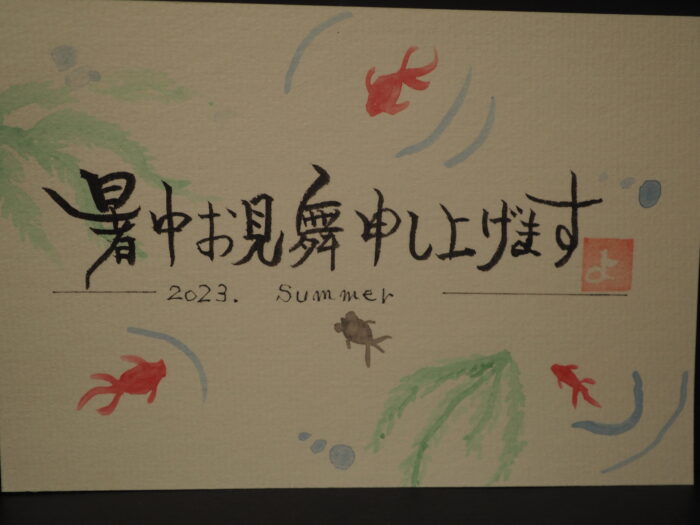 暑中お見舞申し上げます
よ
2023. Summer